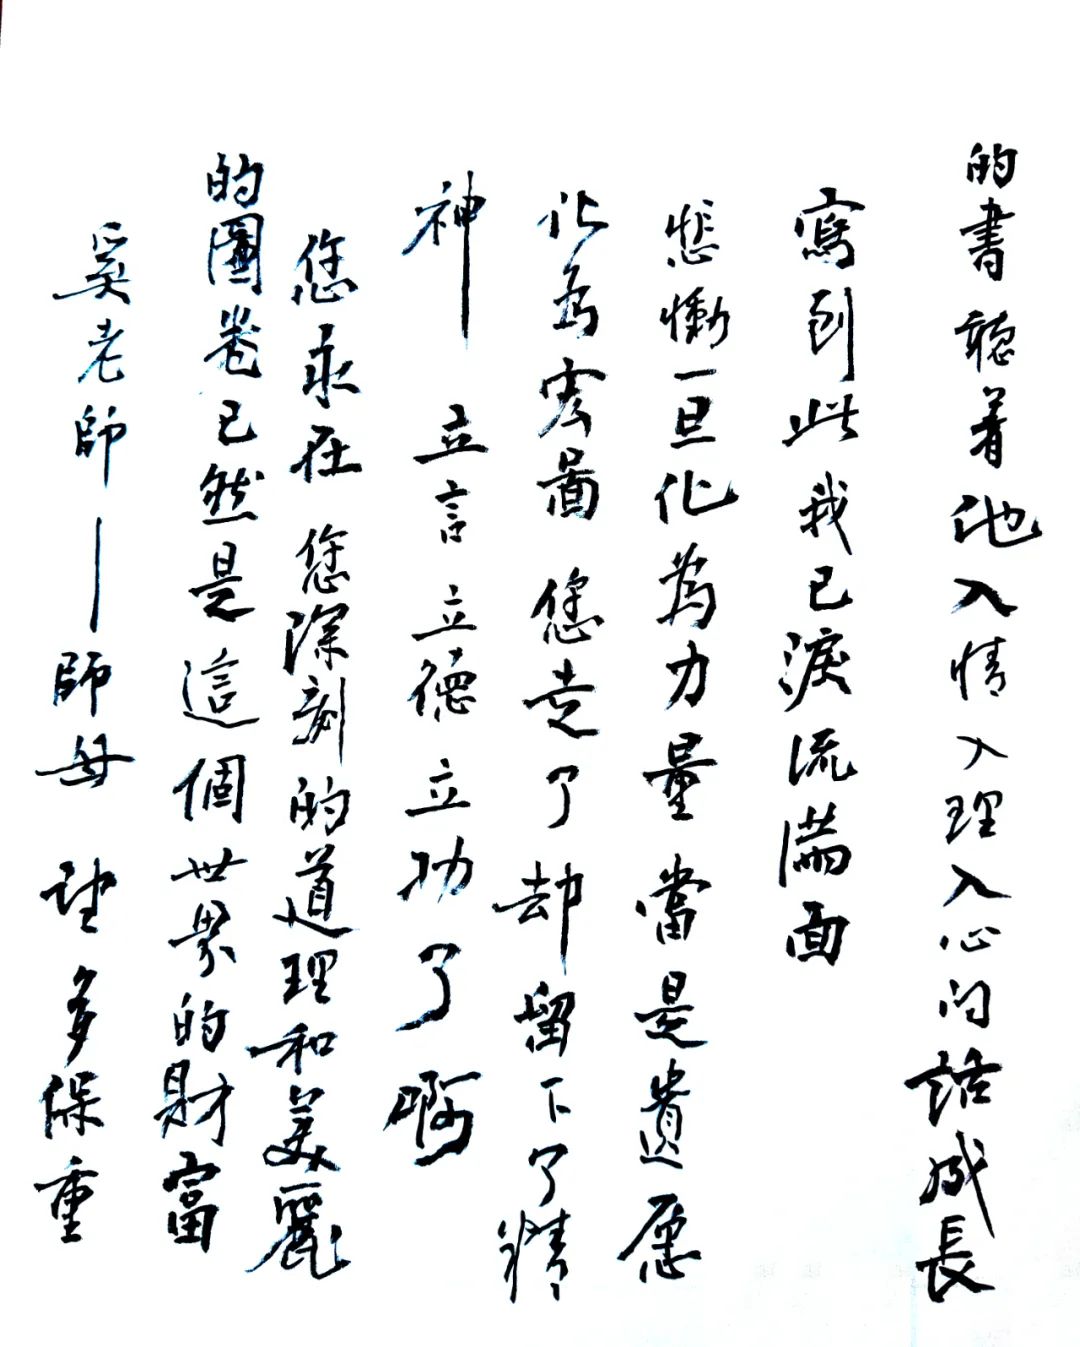 的書聽着他入情入理入心的話成長
寫到此我已淚流滿面
悲慟一旦化為力量當是遺愿
化為宏圖 您走了却留下了精
神 立言立德立功了啊
您永在 您深刻的道理和美麗
的圖卷已然是這個世界的財富
奚老師—師母 望多保重